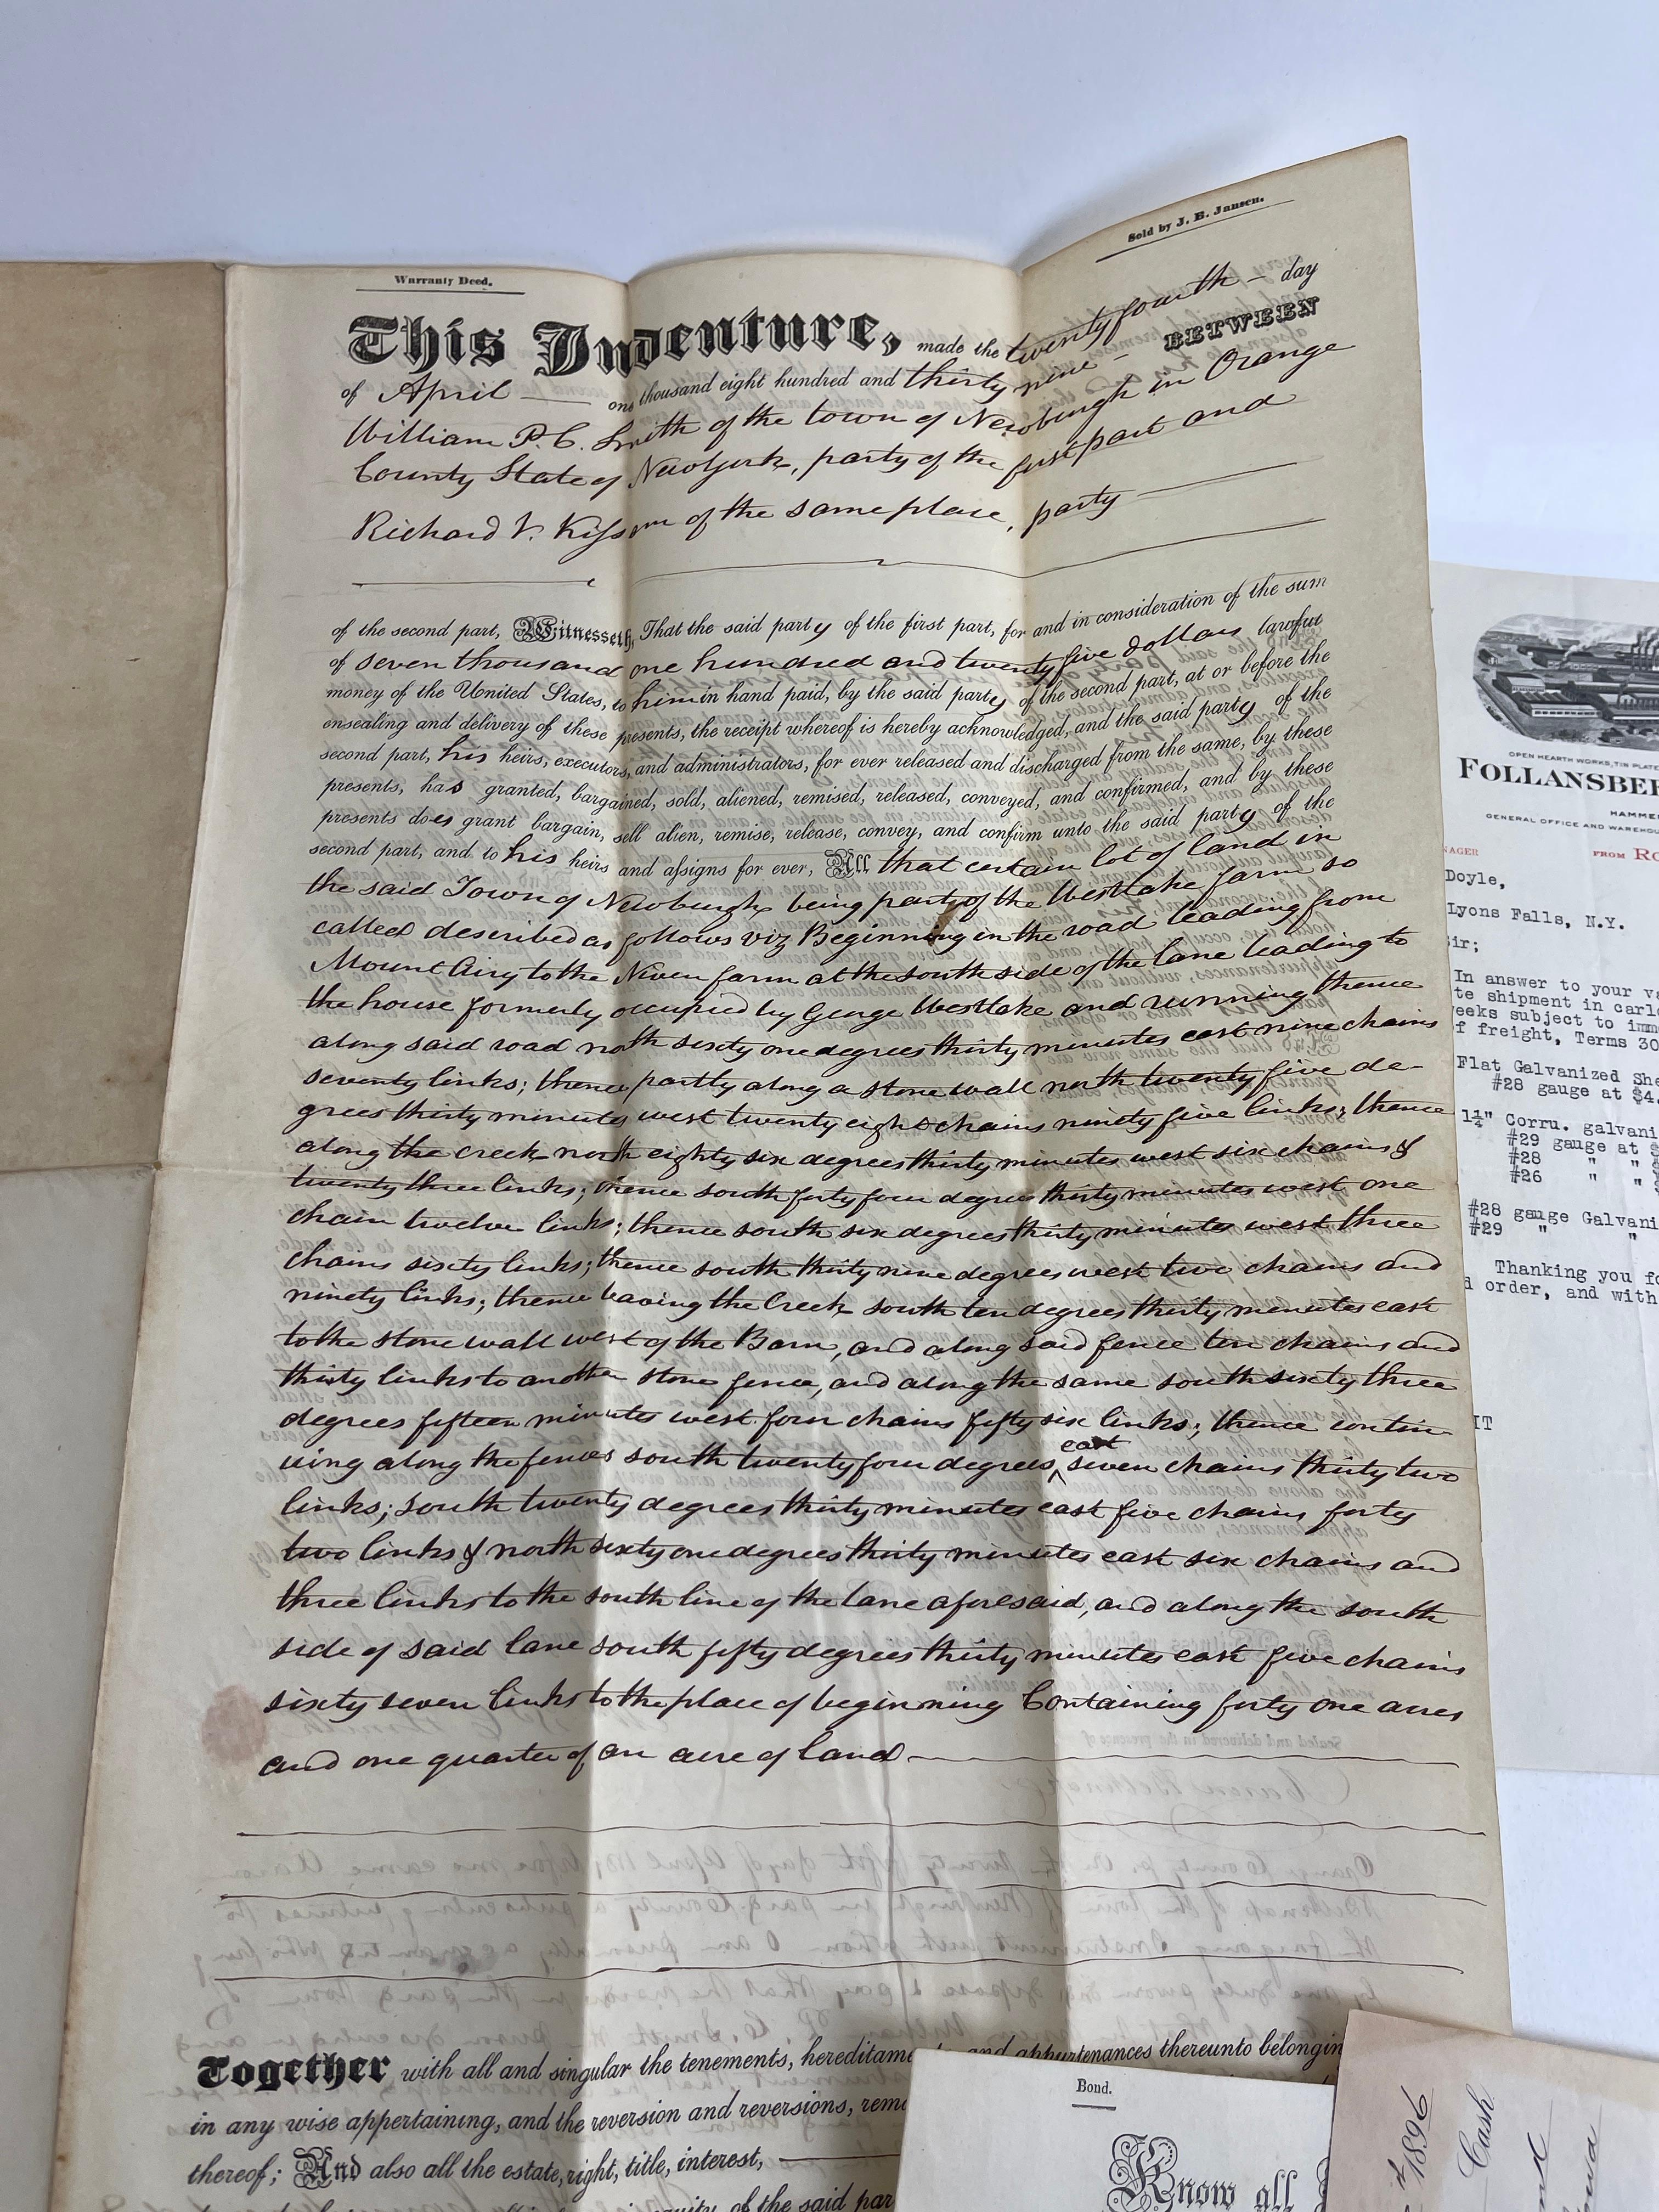 Warranty Deed.
Sold by J. E. Jansen.
This Indenture, made the twenty fourth – day
of April — one thousand eight hundred and thirty nine – BETWEEN
William P. C. Smith of the town of Newburgh in Orange
County State of New York, party of the first part and
Richard V. Kissam of the same place, party —
of the second part, Witnesseth, That the said party of the first part, for and in consideration of the sum
of seven thousand one hundred and twenty five dollars lawful
money of the United States, to him in hand paid, by the said party of the second part, at or before the
ensealing and delivery of these presents, the receipt whereof is hereby acknowledged, and the said party of the
second part, his heirs, executors, and administrators, for ever released and discharged from the same, by these
presents, has granted, bargained, sold, aliened, remised, released, conveyed, and confirmed, and by these
presents does grant bargain, sell alien, remise, release, convey, and confirm unto the said party of the
second part, and to his heirs and assigns for ever, All that certain lot of land in
the said Town of Newburgh being party of the Westlake farm so
called described as follows viz Beginning in the road leading from
Mount Airy to the Niven farm at the south side of the lane leading to
the house formerly occupied by George Westlake and running thence
along said road north sixty one degrees thirty minutes east nine chains
seventy links; thence partly along a stone wall north twenty five de-
grees thirty minutes west twenty eight chains ninety five links; thence
along the creek north eighty six degrees thirty minutes west six chains &
twenty three links; thence south forty four degrees thirty minutes west one
chain twelve links; thence south six degrees thirty minutes west three
chains sixty links; thence south thirty nine degrees west two chains and
ninety links; thence leaving the Creek south ten degrees thirty minutes east
to the stone wall west of the Barn, and along said fence ten chains and
thirty links to another stone fence, and along the same south sixty three
degrees fifteen minutes west four chains fifty six links; thence contin
uing along the fences south twenty four degrees east seven chains thirty two
links; south twenty degrees thirty minutes east five chains forty
two links & north sixty one degrees thirty minutes east six chains and
three links to the south line of the lane aforesaid, and along the south
side of said lane south fifty degrees thirty minutes east five chains
sixty seven links to the place of beginning Containing forty one acres
and one quarter of an acre of land —
Together with all and singular the tenements, and appurtenances thereunto
in any wise appertaining, and the reversion and reversions,
thereof; And also all the estate, right, title, interest, —
of the said
Bond.
Know all
1896
Cash
OPEN HEARTH WORKS, TIN PLATE
FOLLANSBE
GENERAL OFFICE AND
FROM RO
Doyle,
Lyons Falls, N.Y.
In answer to your
te shipment in
eeks subject to
f freight, Terms 30
Flat Galvanized She
#28 gauge at $4.
1¼" Corru. galvani
#29 gauge at $
#28 " " $
#26 " " $
#28 gauge Galvani
#29 " "
Thanking you fo
order, and with
IT